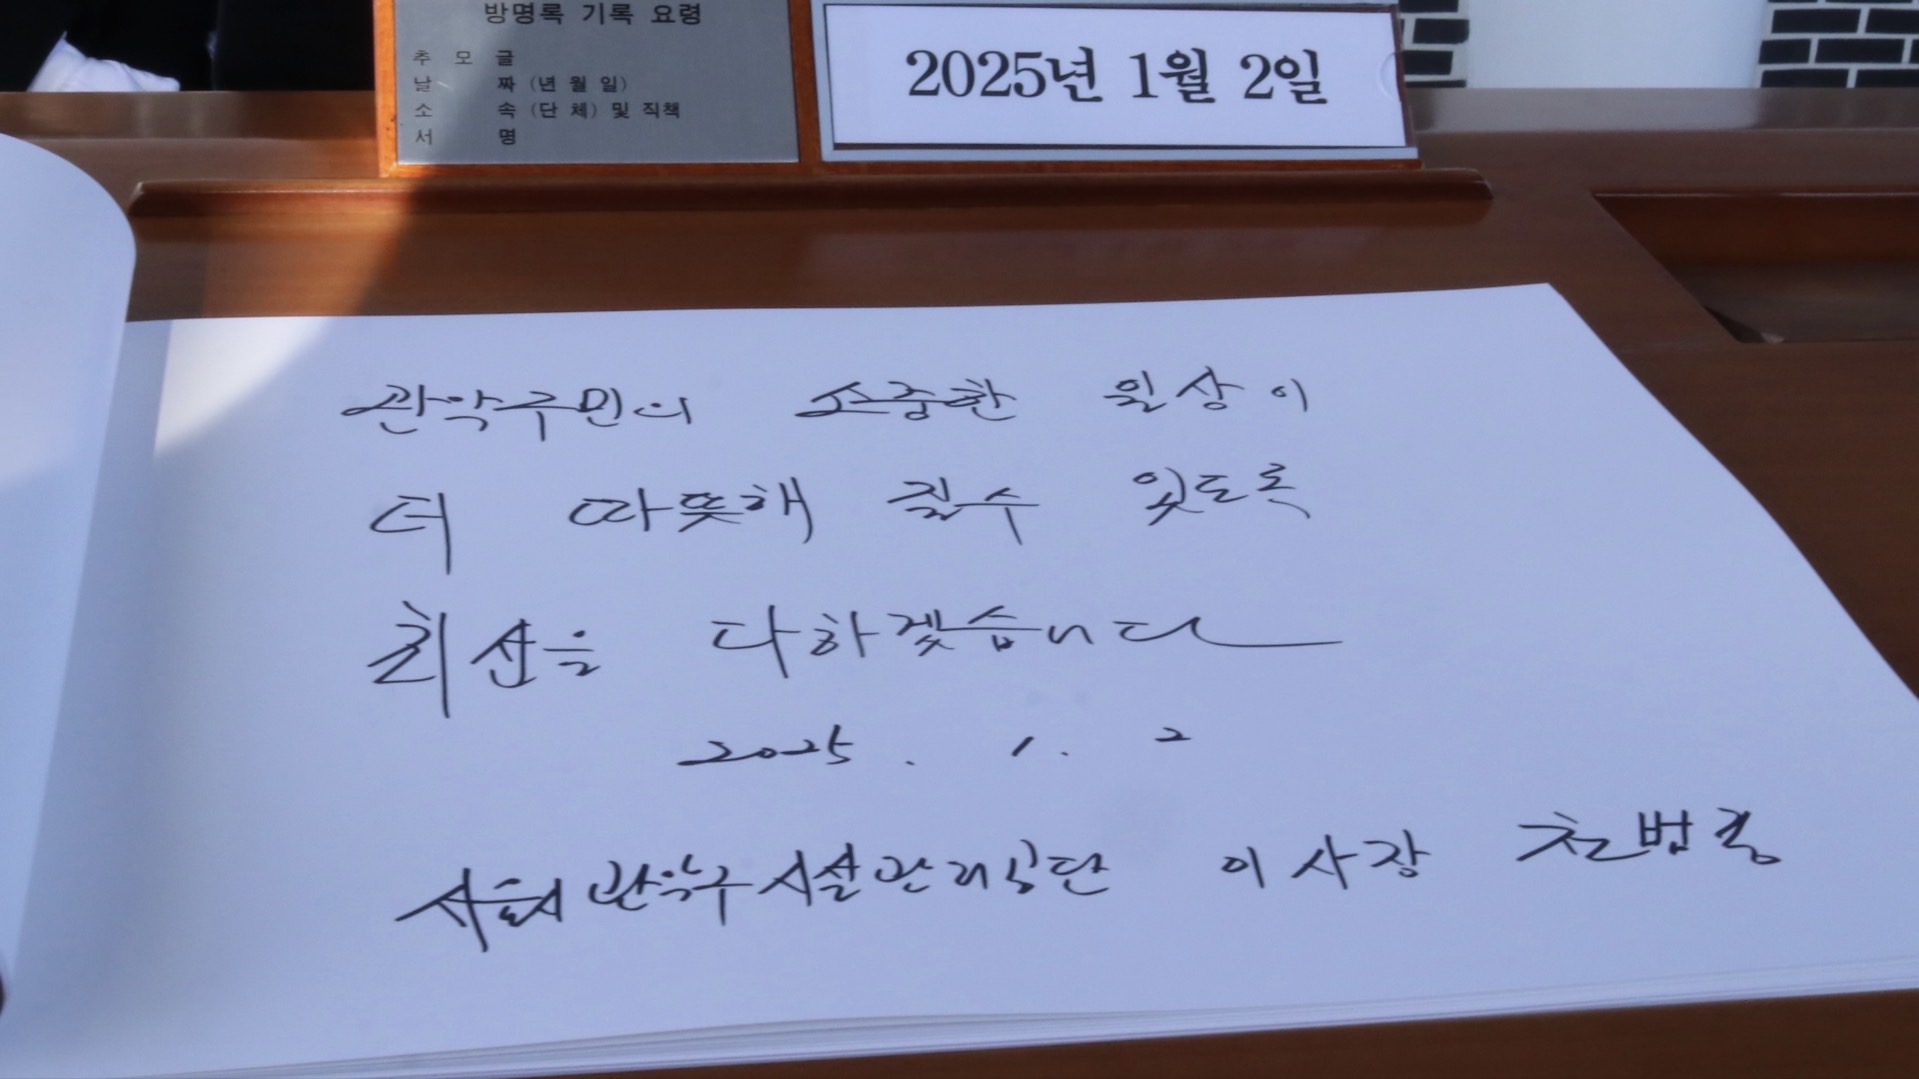 방명록 기록 요령
추 모 글
날 짜 (년 월 일)
소 속 (단 체) 및 직책
서 명
2025년 1월 2일
관악구민의 소중한 일상이
더 따뜻해 질수 있도록
최선을 다하겠습니다
2025. 1. 2
관악구시설관리공단 이사장 천범룡